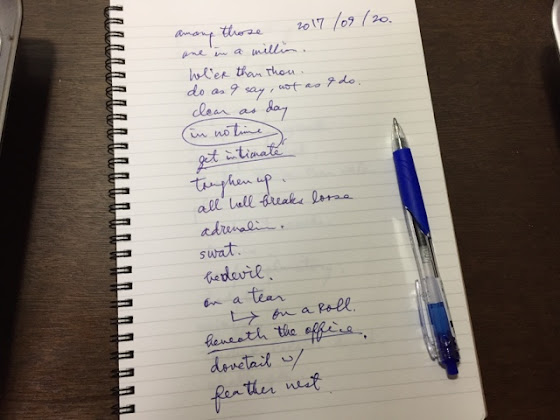 among those 2017/09/20.
one in a million.
holier than thou.
do as I say, not as I do.
clear as day
in no time
get intimate
toughen up.
all hell breaks loose
adrenalin.
swat.
bedevil.
on a tear
↳ on a roll.
beneath the office.
dovetail w/
feather nest